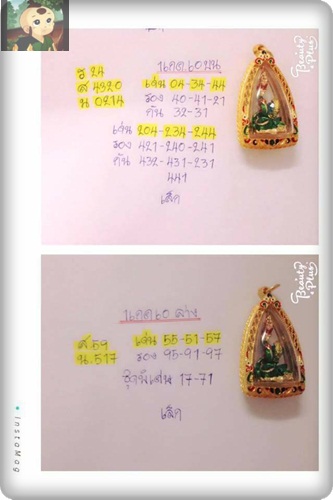 แคด เอ บน
ธี 24
ส 4320
น 0214
เจ่น 04-34-44
รอง 40-41-21
กัน 32-31
เจ่น 204-234-244
รอง 421-240-241
กัน 432-431-231
441
เล็ก
Beauty Plus
แคด เอ ล่าง
ส.59
น.517
เจ่น 55-51-57
รอง 95-91-97
ชุดพิเศษ 17-71
เล็ก
Beauty Plus
InstaMag